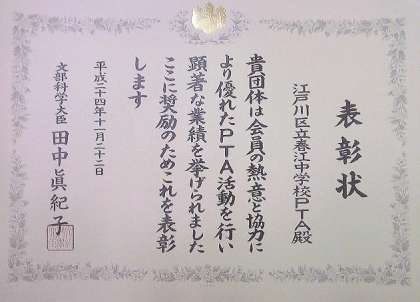 表彰状
江戸川区立春江中学校PTA殿
貴団体は会員の熱意と協力に
より優れたPTA活動を行い
顕著な業績を挙げられました
ここに奨励のためこれを表彰
します
平成二十四年十一月二十二日
文部科学大臣 田中眞紀子